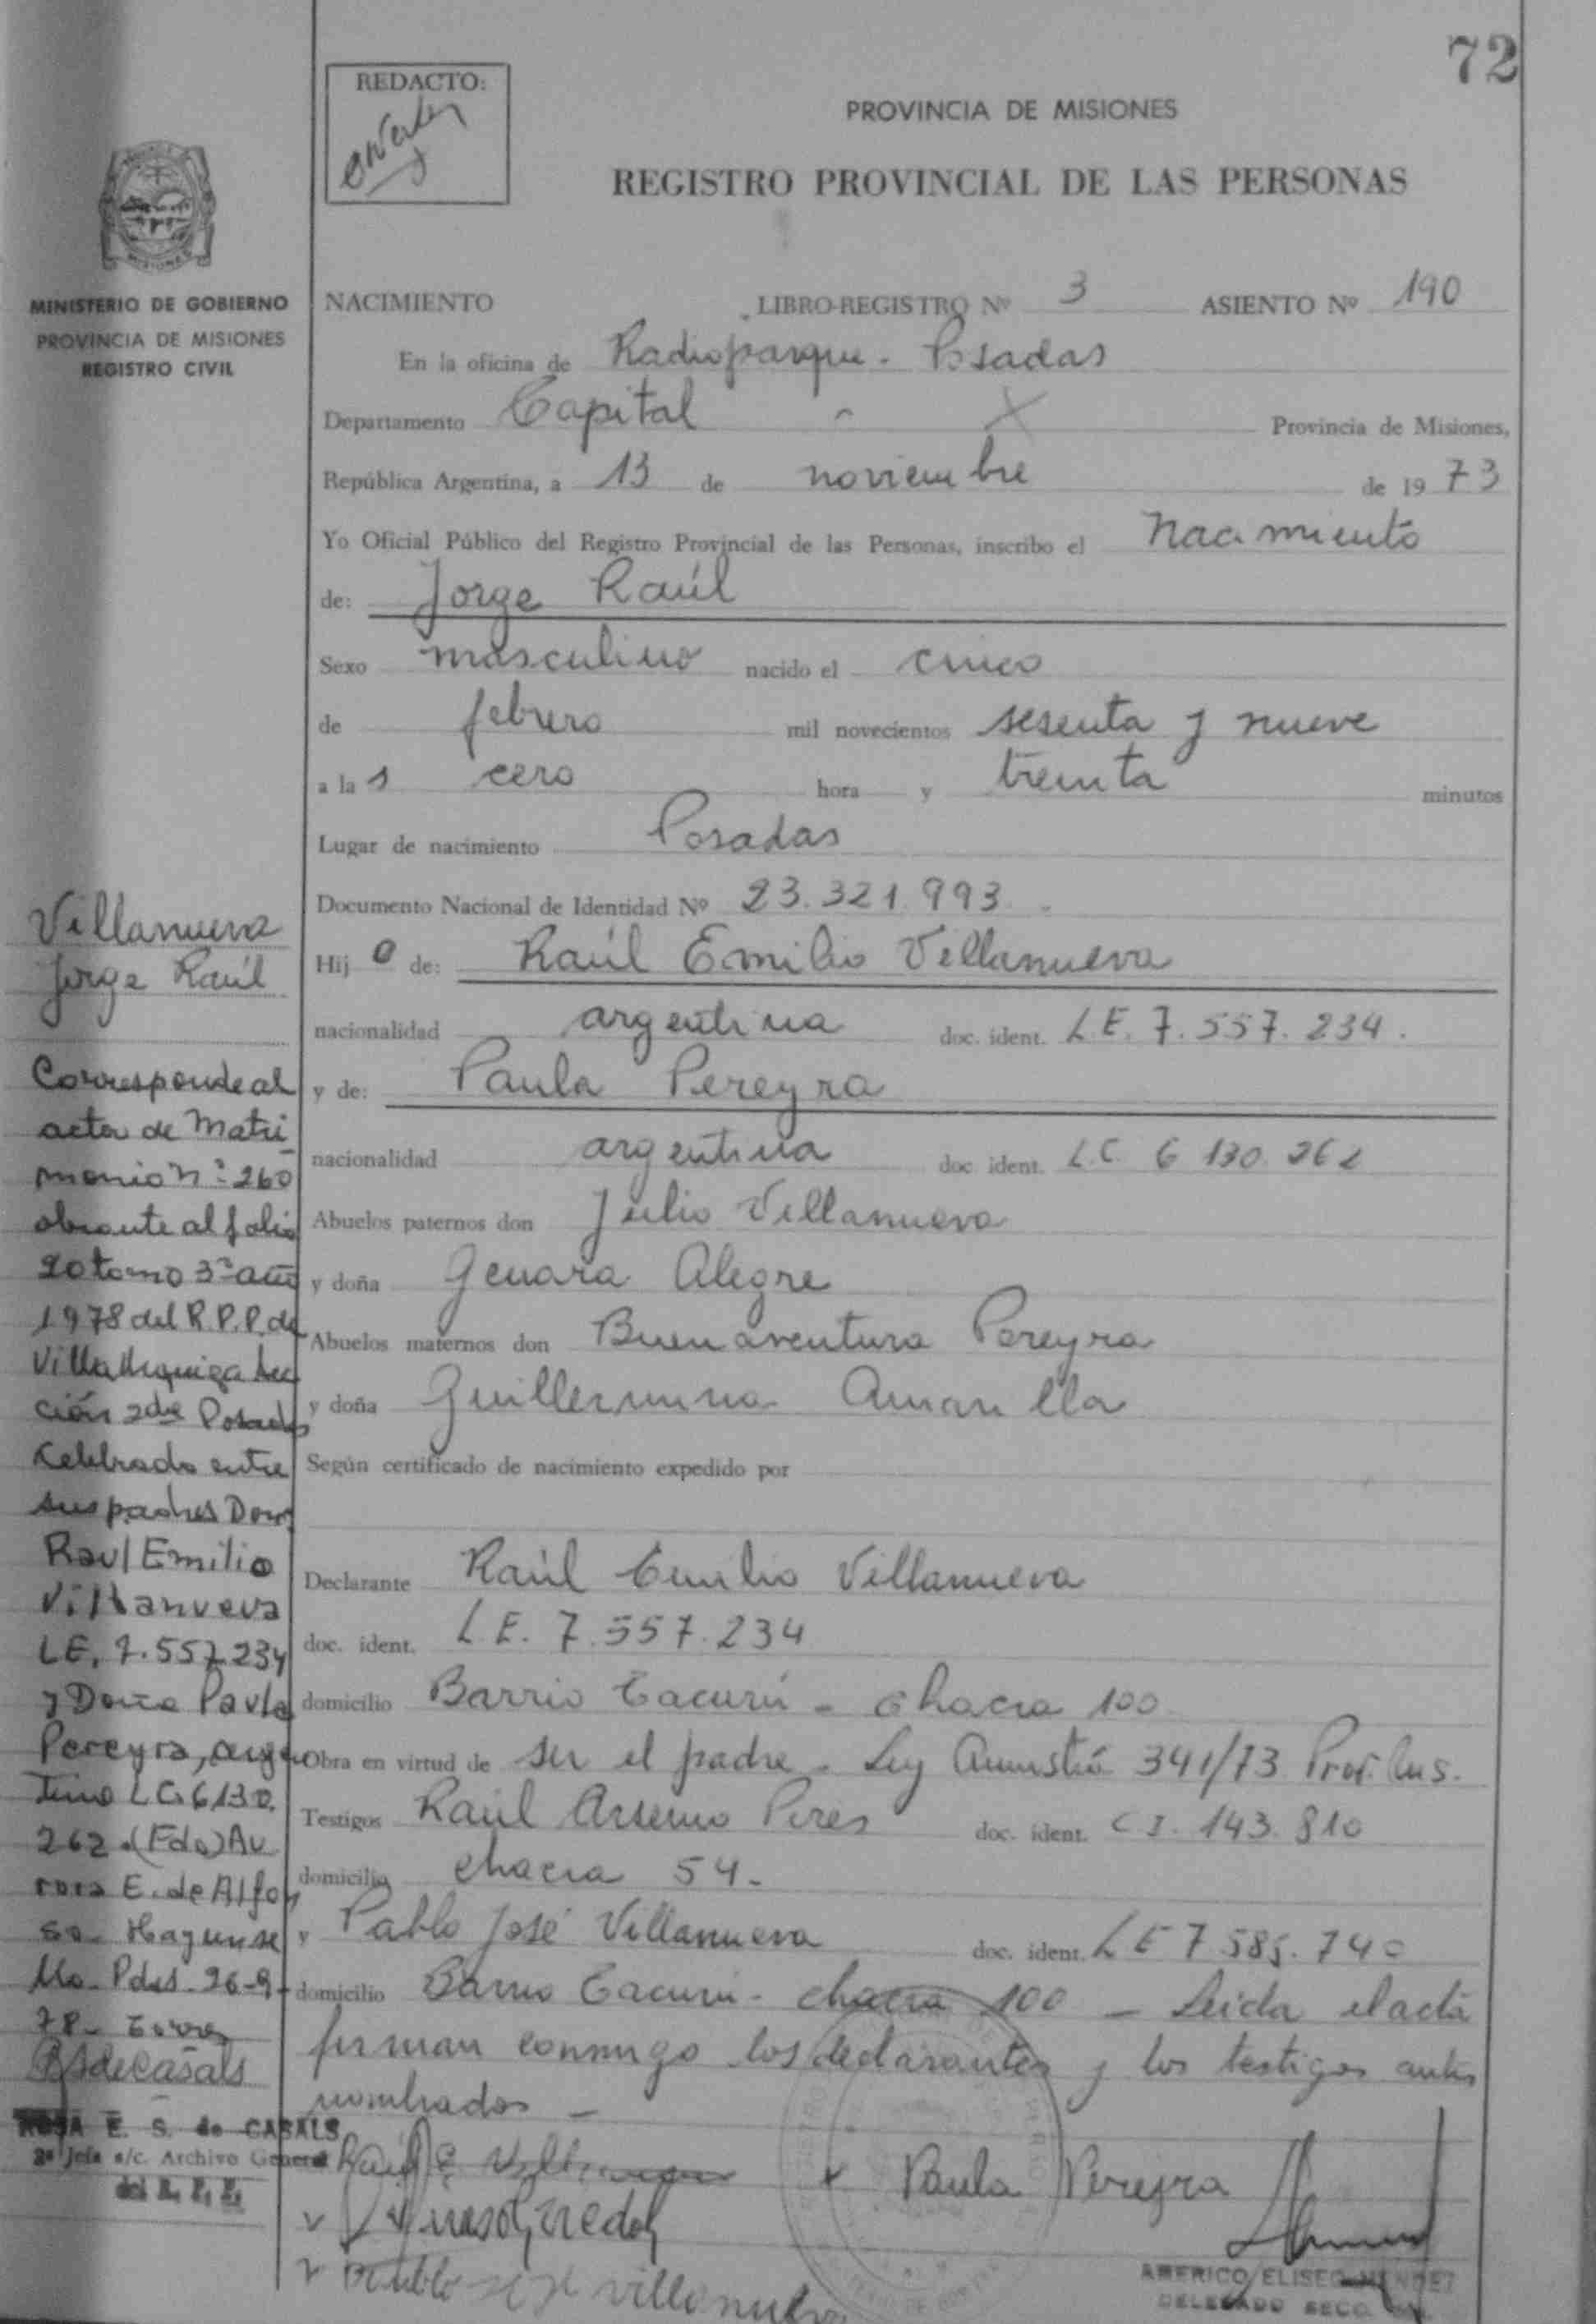 72
REDACTO:
PROVINCIA DE MISIONES
REGISTRO PROVINCIAL DE LAS PERSONAS
MISIONES
MINISTERIO DE GOBIERNO
PROVINCIA DE MISIONES
REGISTRO CIVIL
NACIMIENTO LIBRO-REGISTRO Nº 3 ASIENTO Nº 190
En la oficina de Radioparque - Posadas
Departamento Capital Provincia de Misiones,
República Argentina, a 13 de noviembre de 1973
Yo Oficial Público del Registro Provincial de las Personas, inscribo el Nacimiento
de: Jorge Raúl
Sexo masculino nacido el cinco
de febrero mil novecientos sesenta y nueve
a las cero hora y treinta minutos
Lugar de nacimiento Posadas
Documento Nacional de Identidad Nº 23.321.993
Hijo de: Raúl Emilio Villanueva
nacionalidad argentina doc. ident. L.E. 7.557.234.
y de: Paula Pereyra
nacionalidad argentina doc. ident. L.C. 6 130.262
Abuelos paternos don Julio Villanueva
y doña Genara Alegre
Abuelos maternos don Buenaventura Pereyra
y doña Guillermina Amarilla
Según certificado de nacimiento expedido por
Declarante Raúl Emilio Villanueva
doc. ident. L.E. 7.557.234
domicilio Barrio Tacurú - chacra 100
Obra en virtud de ser el padre. Ley Amnistía 341/73
Testigos Raúl Arsenio Peres doc. ident. C.I. 143.810
domicilio chacra 54.-
y Pablo José Villanueva doc. ident. LE 7 585.740
domicilio Barrio Tacurú - chacra 100 - Leida el acta
firman conmigo los declarantes y los testigos antes
nombrados -
Raúl E Villanueva Paula Pereyra
Pablo José Villanueva
AMERICO ELISEO MENDEZ
DELEGADO SECC.
Villanueva
Jorge Raúl
Corresponde al
acta de Matri
monio nº 260
obrante al folio
20 tomo 3º año
1978 del R.P.P. de
Villa Urquiza Sec
ción 2da Posadas
Celebrado entre
sus padres Don
Raul Emilio
Villanueva
LE. 7.557.234
y Doña Paula
Pereyra, argen
tina LC. 6130.
262. (Fdo) Au
rora E. de Alfon
so. Hagunse
Mo. Pdas. 26-9-
78-
ESdeCasals
ROSA E. S. de CASALS
2º Jefe a/c. Archivo General
del R. P. P.